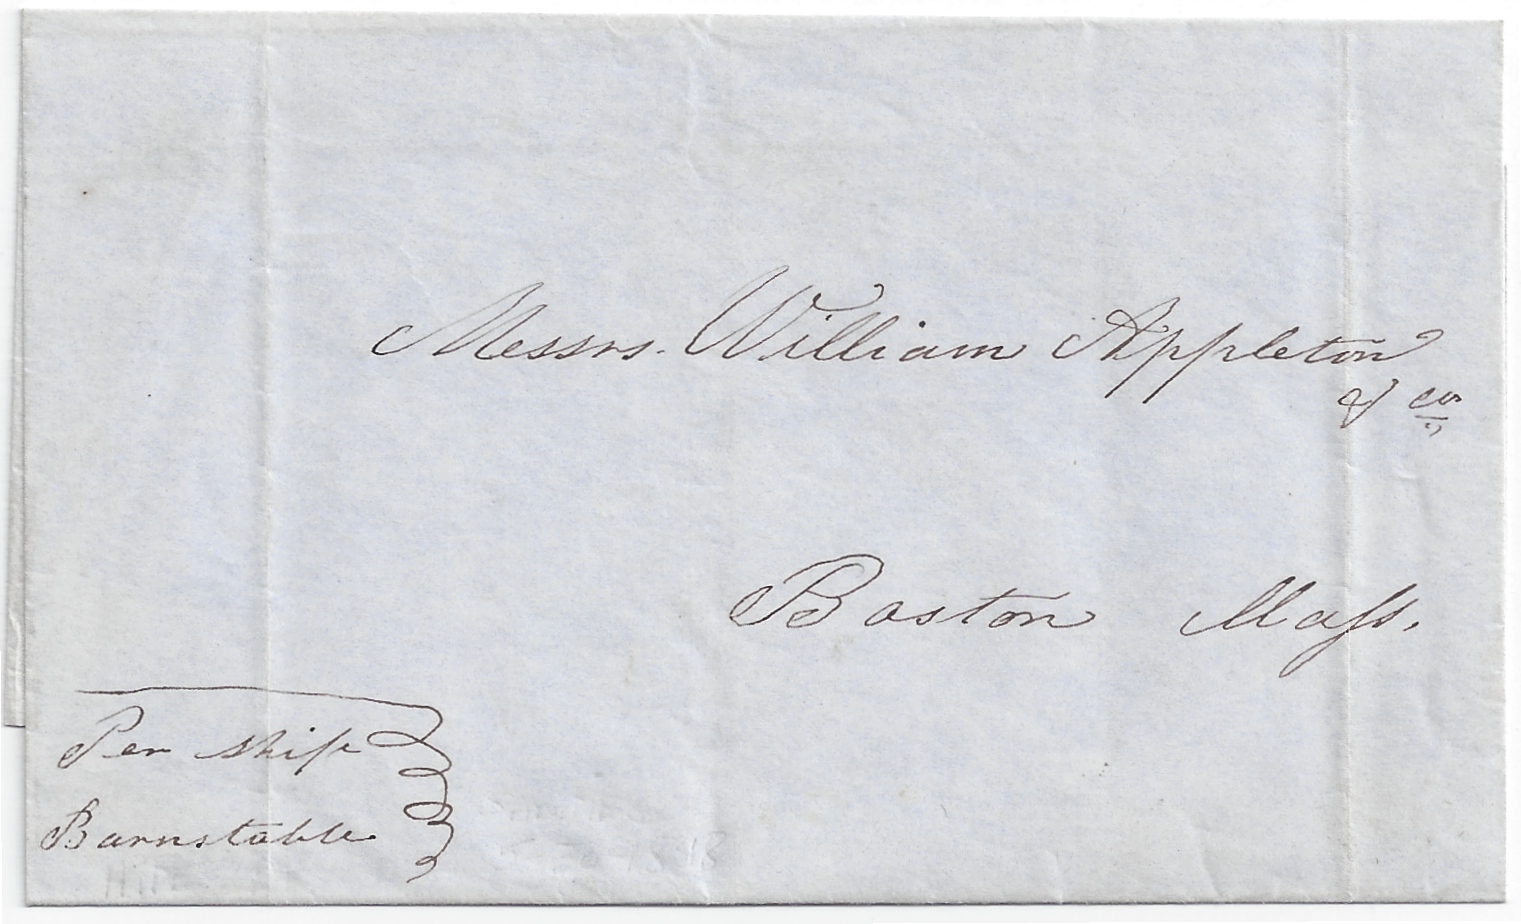 Messrs. William Appleton
& Co.
Boston Mass.
Per ship
Barnstable